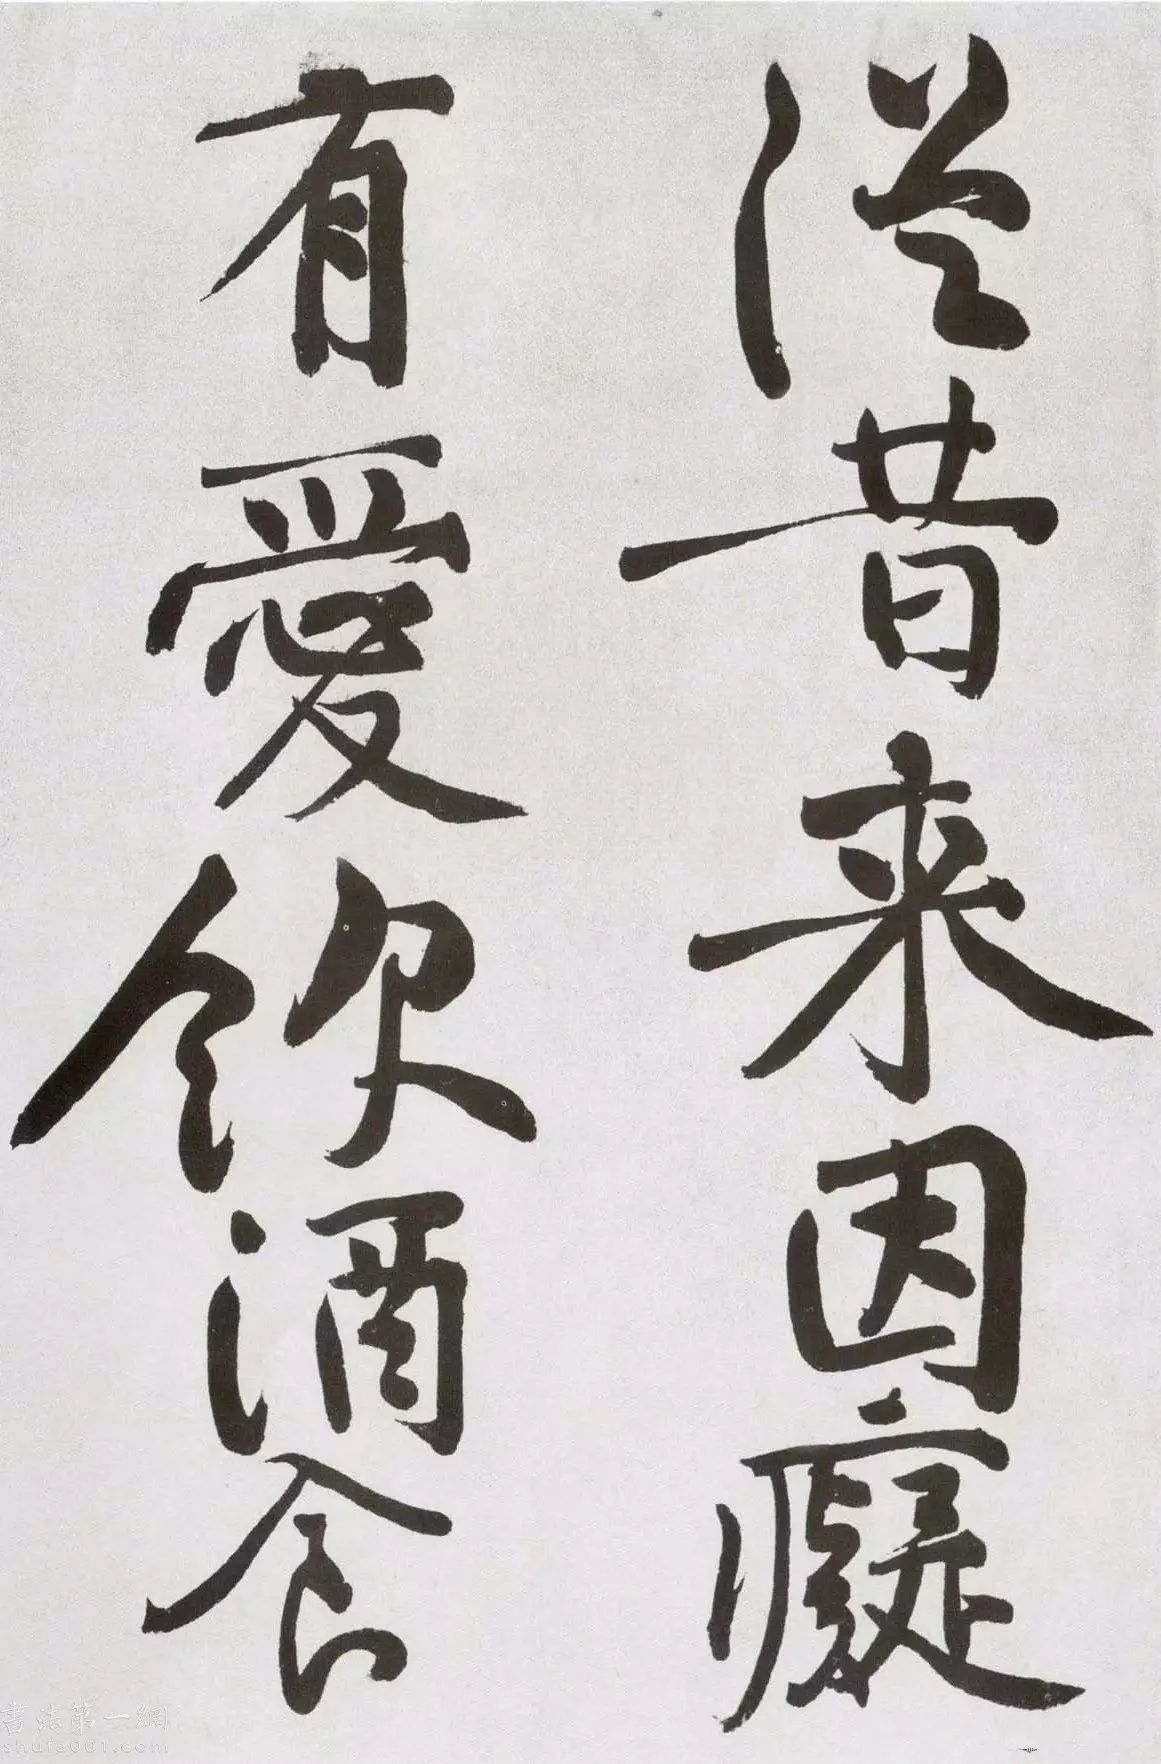 從昔来因癡
有愛飲酒食
書法第一網
shufa001.com